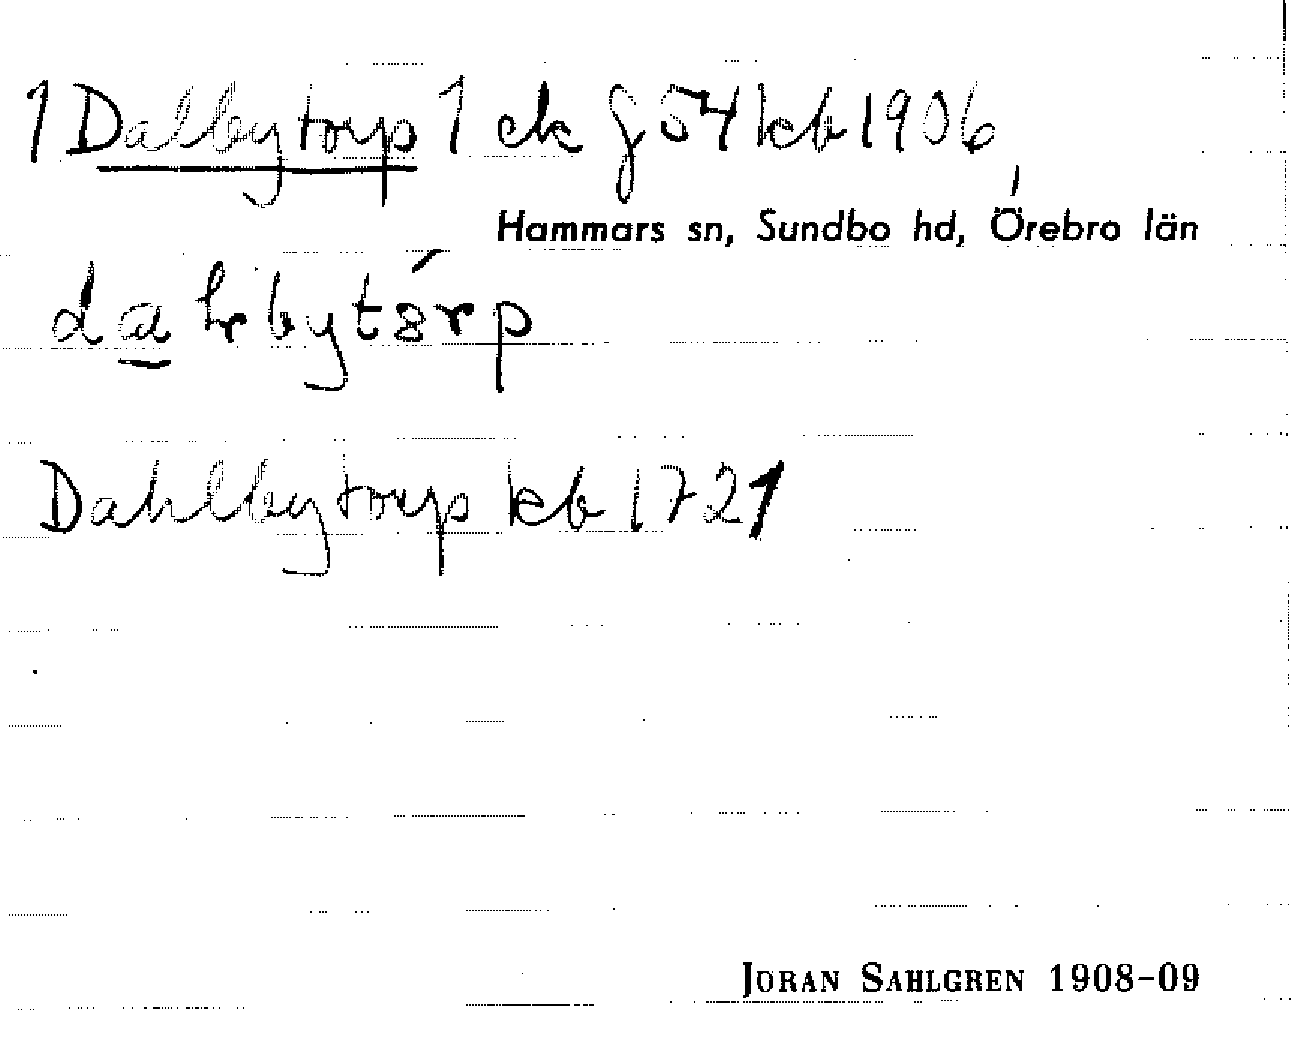 1 Dalbytorp 1 ck g 54 kb 1906
Hammars sn, Sundbo hd, Örebro län
Dahlbytorp kb 1721
JÖRAN SAHLGREN 1908-09